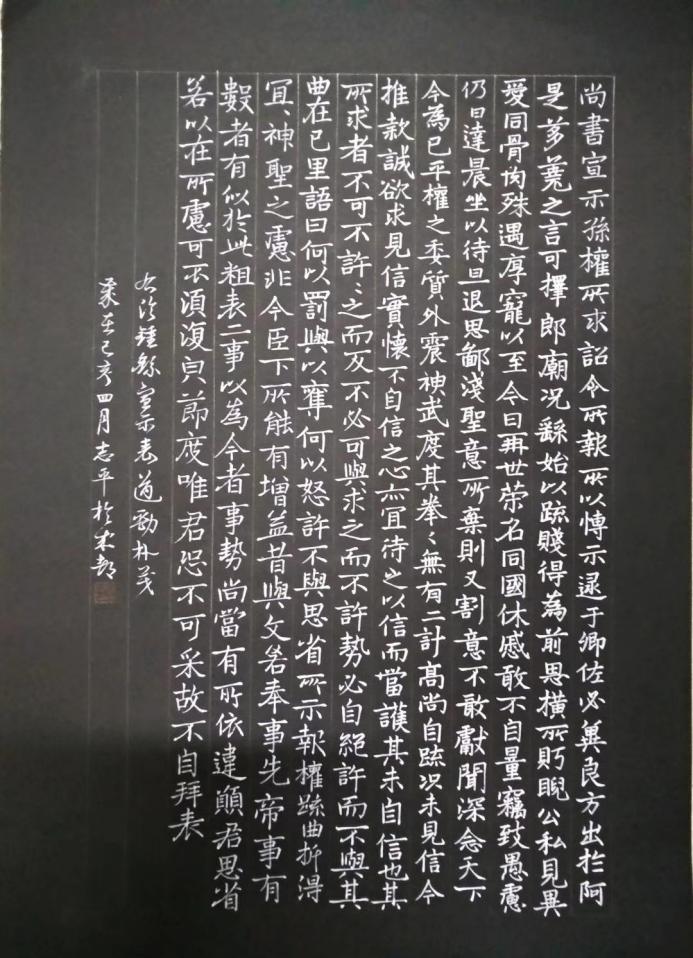 尚書宣示孫權所求詔令所報所以博示逮于卿佐必冀良方出於阿
是芻蕘之言可擇郎廟況繇始以疏賤得為前恩橫所盻睨公私見異
愛同骨肉殊遇厚寵以至今日再世荣名同國休慼敢不自量竊致愚慮
仍日達晨坐以待旦退思鄙淺聖意所棄則又割意不敢獻聞深念天下
今為已平權之委質外震神武度其拳〻無有二計高尚自疏況未見信今
推款誠欲求見信實懷不自信之心亦宜待之以信而當護其未自信也其
所求者不可不許〻之而反不必可與求之而不許勢必自絕許而不與其
曲在己里語曰何以罰與以奪何以怒許不與思省所示報權疏曲折得
宜神聖之慮非今臣下所能有增益昔與文若奉事先帝事有
數者有似於此粗表二事以為今者事勢尚當有所依違顧君思省
若以在所慮可不須復皃節度唯君恐不可采故不自拜表
右臨鍾繇宣示表遒勁朴茂
歲在己亥四月志平於